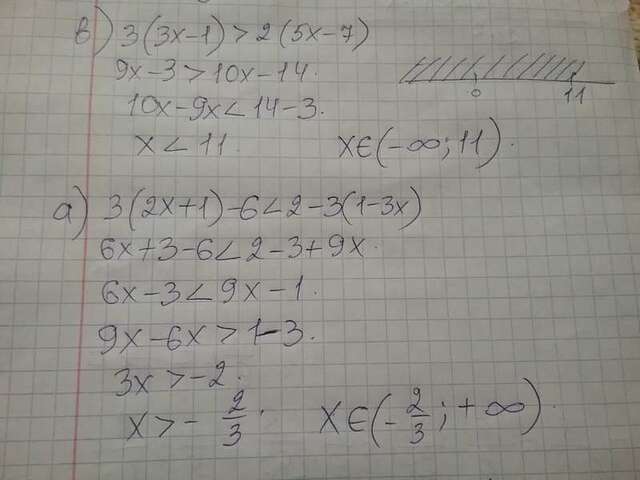 в) 3(3x-1) > 2(5x-7)
9x-3 > 10x-14.
10x-9x < 14-3.
x < 11. x∈(-∞; 11).
0 11
а) 3(2x+1)-6 < 2-3(1-3x)
6x+3-6 < 2-3+9x.
6x-3 < 9x-1.
9x-6x > 1-3.
3x > -2.
x > -2/3; x∈(-2/3; +∞).